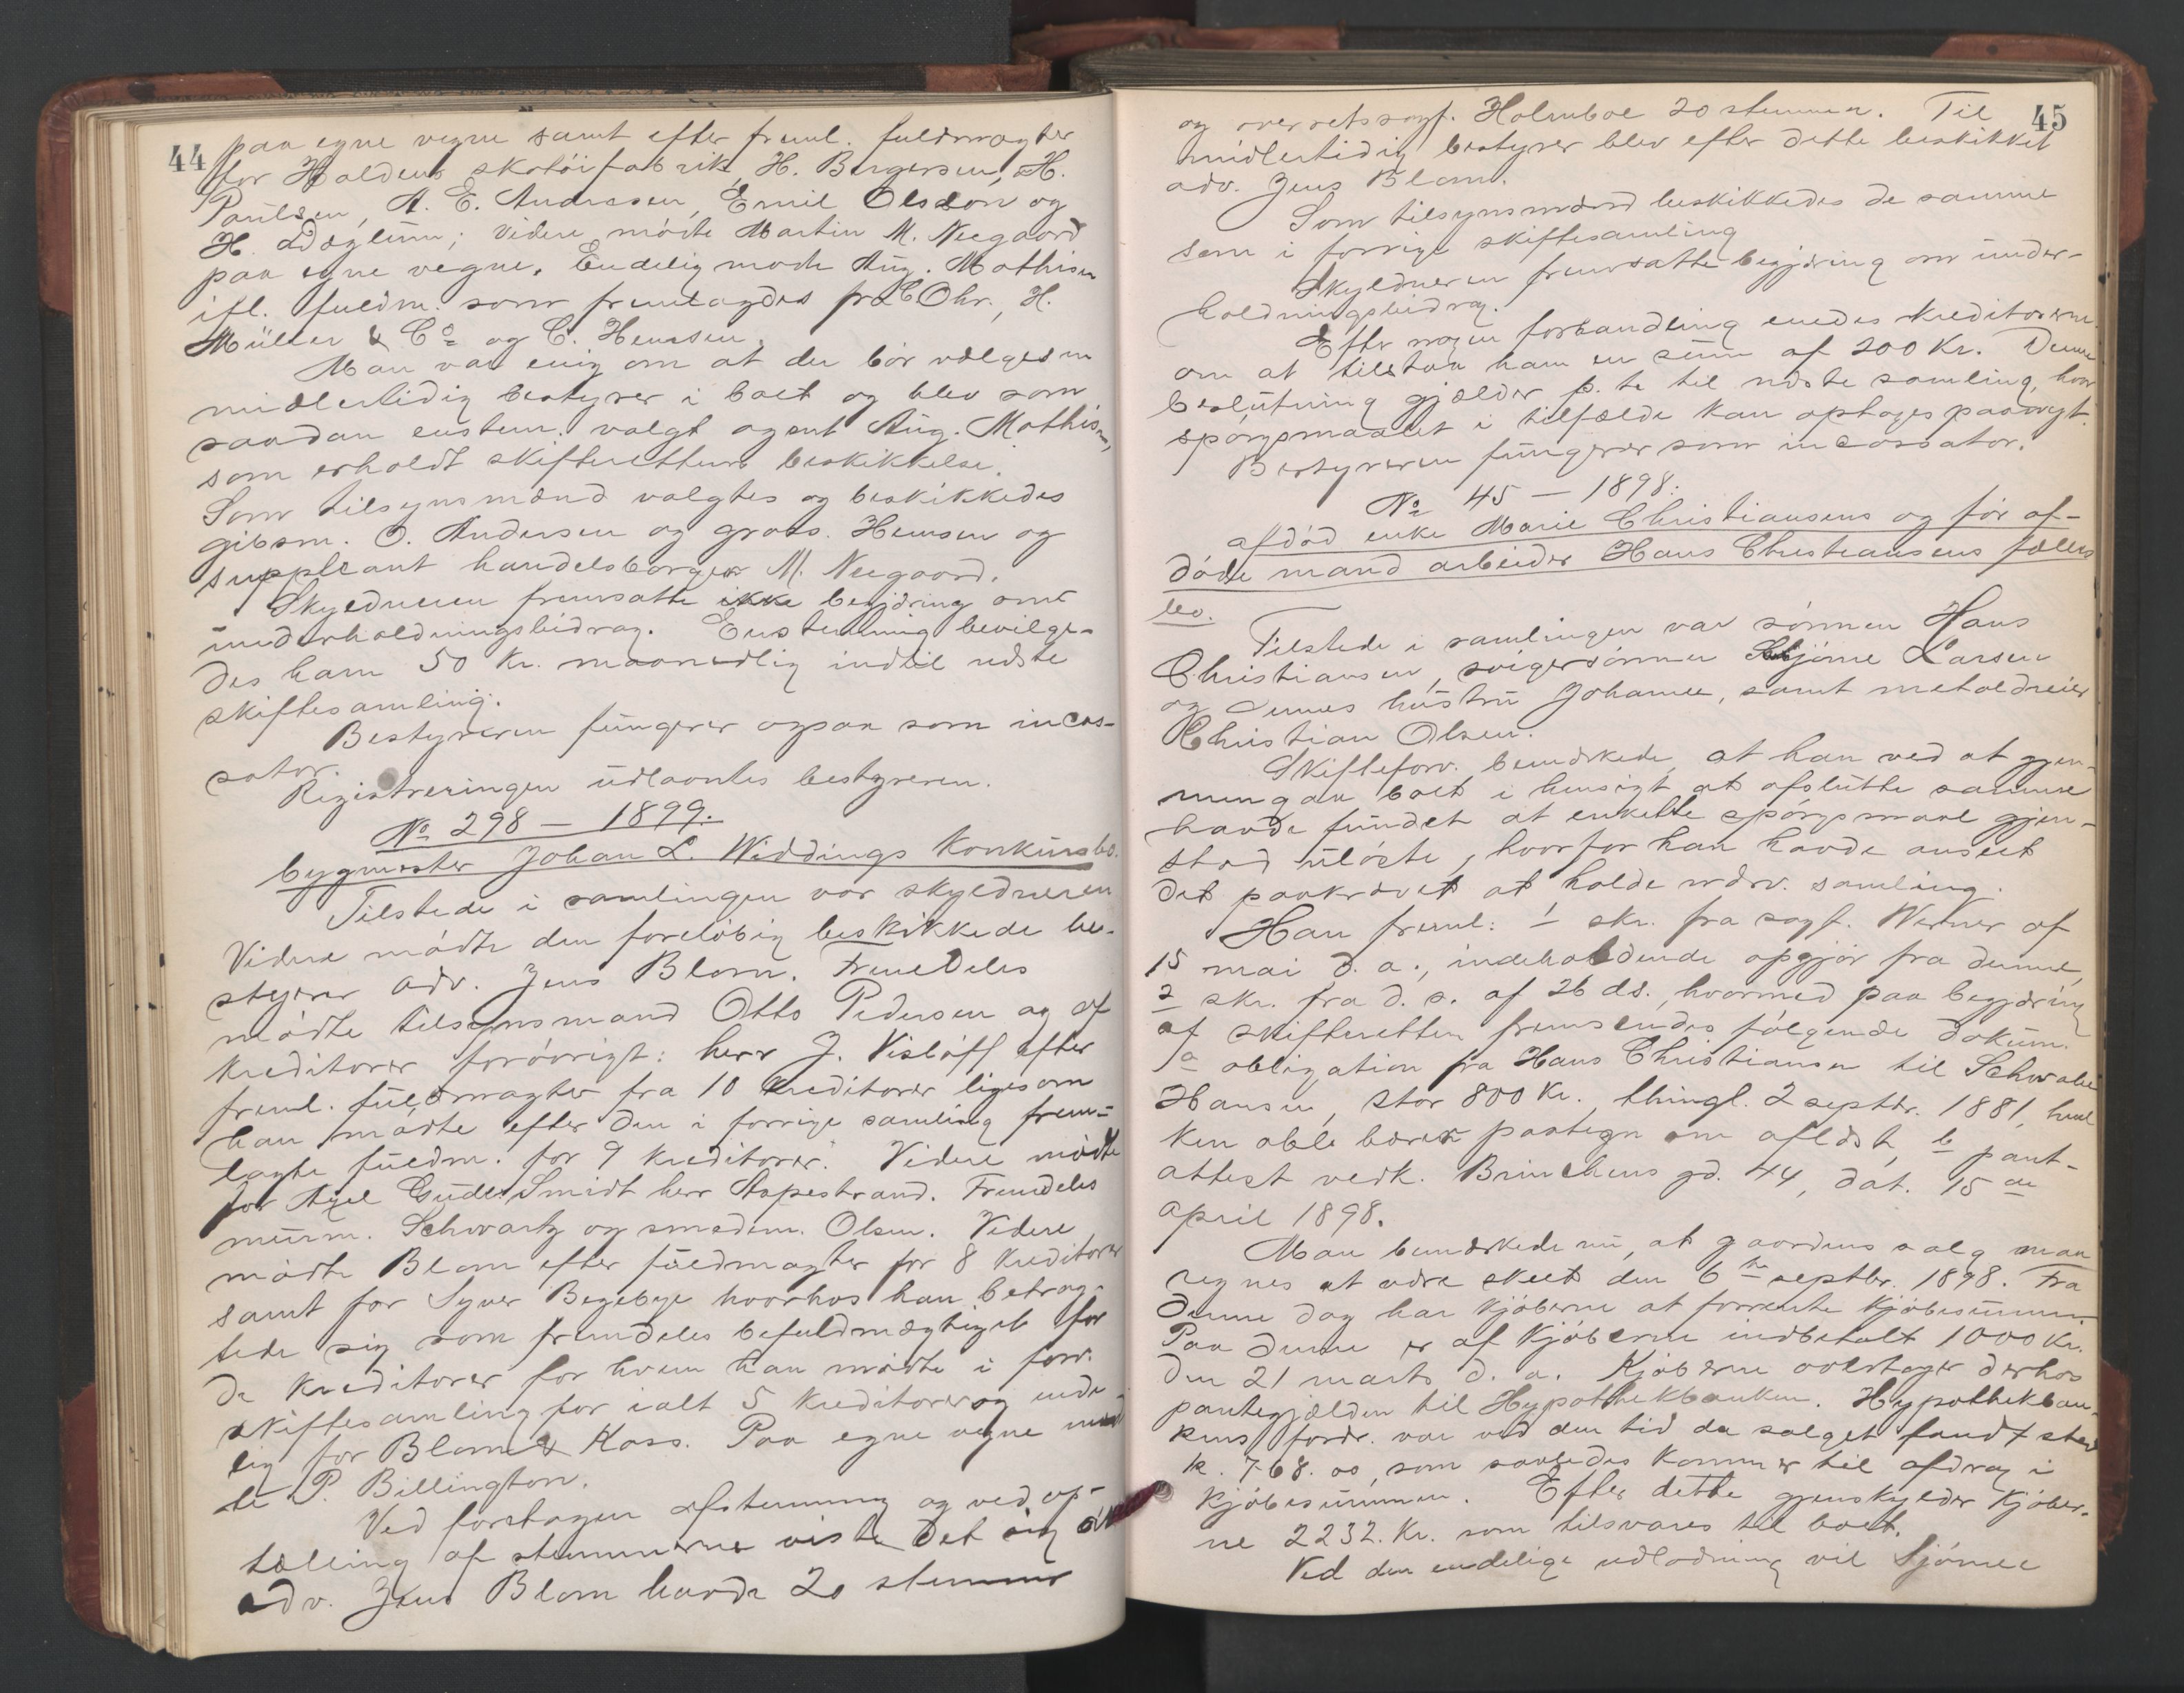 44
paa egne vegne samt efter freml. fuldmagter
for Haldens skotöifabrik, H. Birgersen, H.
Paulsen, A. E. Andressen, Emil Olsson og
H. Döglum; videre mödte Martin M. Neegaard
paa egne vegne. Endelig mödte Aug. Mathisen
ifl. fuldm. som fremlagdes fra Chr. H.
Müller & Co og C. Hemsen.
Man var enig om at der bör vælges en
midlertidig bestyrer i boet og blev som
saadan enstem. valgt agent Aug. Mathisen,
som erholdt skifterettens beskikkelse.
Som tilsynsmænd valgtes og beskikkedes
gibsm. O. Andersen og gross. Hemsen og
suppleant handelsborger M. Neegaard.
Skyldneren fremsatte ikke begjöring om
underholdningsbidrag. Enstemmig bevilge-
des ham 50 Kr. maanedlig indtil næste
skiftesamling.
Bestyreren fungerer ogsaa som incas-
sator.
Registreringen udlaantes bestyreren.
No 298 – 1899.
bygmester Johan L. Widdings Konkursbo.
Tilstede i samlingen var skyldneren
Videre mödte den foreløbig beskikkede be-
styrer adv. Jens Blom. Fremdeles
mödte tilsynsmand Otto Pedersen og af
kreditorer forövrigt: herr J. Visløff efter
freml. fuldmagter fra 10 kreditorer ligesom
han mødte efter den i forrige samling frem-
lagte fuldm. for 9 kreditorer. Videre mødte
for Axel Gude Smidt herr Aspestrand. Fremdeles
murm. Schwartz og smedem. Olsen. Videre
mødte Blom efter fuldmagter for 8 kreditorer
samt for Syver Begebye hvorhos han betrag-
tede sig som fremdeles befuldmægtiget for
de kreditorer for hvem han mödte i forr.
skiftesamling for ialt 5 kreditorer og ende-
lig for Blom & Kass. Paa egne vegne möd-
te P. Billington.
Ved foretagen afstemning og ved op-
tælling af stemmerne viste det sig at
adv. Jens Blom havde 20 stemmer
45
og overretssagf. Holmboe 20 stemmer. Til
midlertidig bestyrer blev efter dette beskikket
adv. Jens Blom.
Som tilsynsmænd beskikkedes de samme
som i forrige skiftesamling
Skyldneren fremsatte begjæring om under-
holdningsbidrag.
Efter nogen forhandling enedes kreditorerne
om at tilstaa ham en sum af 200 Kr. Denne
beslutning gjælder p. te til næste samling, hvor
spörgsmaalet i tilfælde kan optages paanyt.
Bestyreren fungerer som incassator.
No 45 – 1898:
afdöd enke Marie Christiansens og för af-
döde mand arbeider Hans Christiansens fælles
bo.
Tilstede i samlingen var sönnen Hans
Christiansen, svigersönnen Sjörne Larsen
og dennes hustru Johanne, samt metaldreier
Christian Olsen.
Skifteforv. bemærkede, at han ved at gjen-
nemgaa boet i hensigt at afslutte samme
havde fundet at enkelte spörgsmaal gjen-
stod ulöste, hvorfor han havde anseet
det paakrævet at holde nærv. samling.
Han freml: 1 skr. fra sagf. Werner af
15 mai d. a., indeholdende opgjör fra denne,
2 skr. fra d. s. af 26 ds., hvormed paa begjæring
af skifteretten fremsendes fölgende dokum.
a obligation fra Hans Christiansen til Schwalie
Hansen, stor 800 Kr., thingl. 2 septbr. 1881, hvil
ken obl. bærer paategn om aflöst, b pant-
attest vedk. Brinchens gd. 44, dat. 15de
april 1898.
Man bemærkede nu, at gaardens salg maa
regnes at være skeet den 6te septbr. 1898. Fra
denne dag har kjöberne at forrente kjöbesummen.
Paa denne er af kjöberne indbetalt 1000 Kr.
den 21 marts d. a. Kjöberne overtager derhos
pantegjælden til Hypothekbanken. Hypothekban-
kens fordr. var ved den tid da salget fandt sted
K. 768.00, som saaledes kommer til afdrag i
kjöbesummen. Efter dette gjenskylder kjöber-
ne 2232. Kr. som tilsvares til boet.
Ved den endelige udlodning vil Sjörne